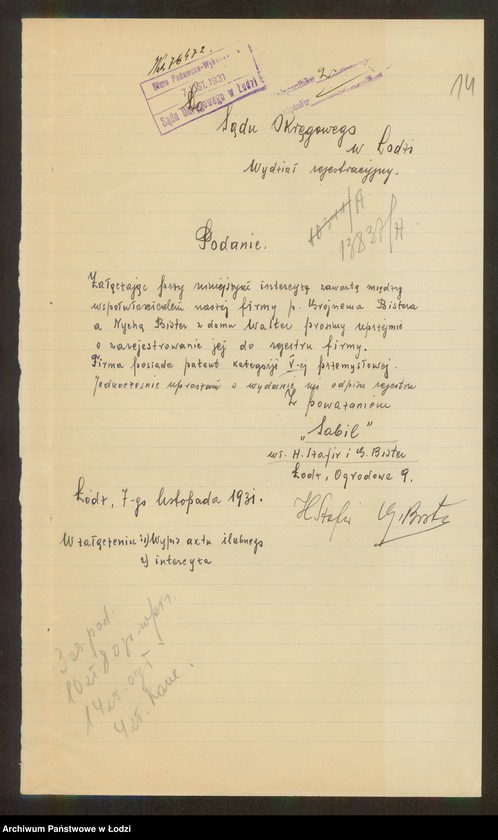 14
Biuro Podawczo-
7 LIST. 1931
Sądu Okręgowego w Łodzi
Do
Sądu Okręgowego
w Łodzi
Wydział rejestracyjny.
13837/A
Podanie.
Załączając przy niniejszym intercyzę zawartą między
współwłaścicielem naszej firmy p. Grojnema Bistera
a Nychą Bister z domu Walter prosimy uprzejmie
o zarejestrowanie jej do rejestru firmy.
Firma posiada patent kategorji V-ej przemysłowej.
Jednocześnie upraszam o wydanie odpisu rejestru
Z poważaniem
„Sabil”
wł. H. Szafir i G. Bister
Łódź, Ogrodowa 9.
Łódź, 7-go listopada 1931.
H Szafir G. Bister
W załączeniu: 1) Wypis aktu ślubnego
2) intercyza
3 zł. pod.
10 zł 80 gr
14 zł. ogł.
4 zł. kanc.
Archiwum Państwowe w Łodzi